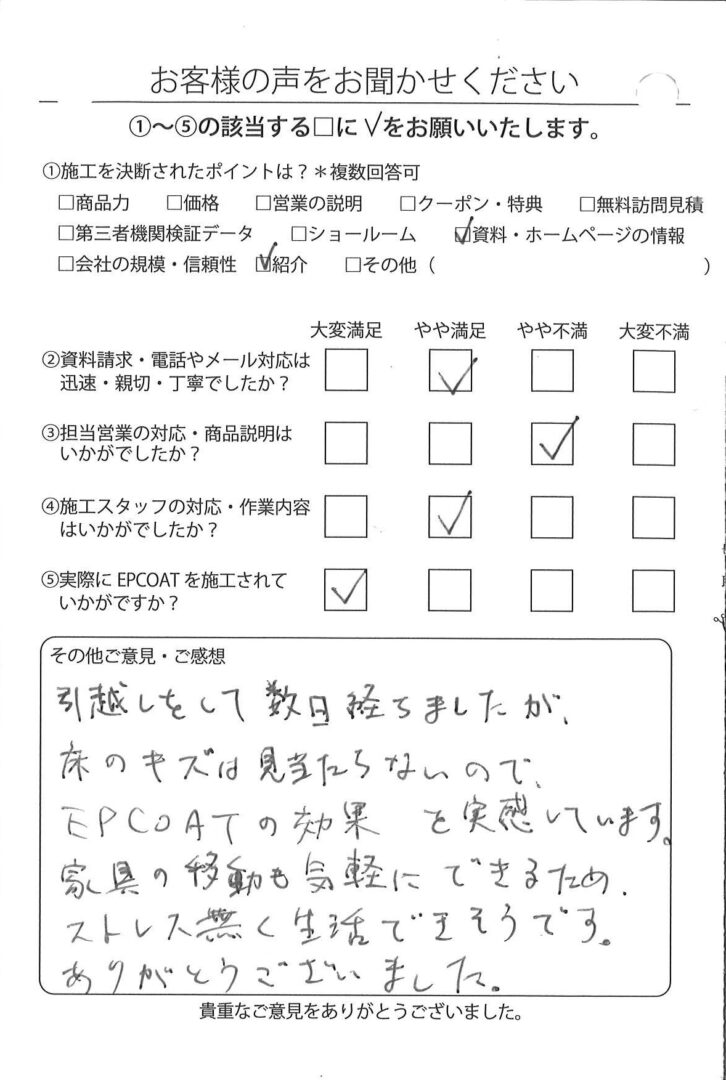 お客様の声をお聞かせください
①～⑤の該当する□に√をお願いいたします。
①施工を決断されたポイントは？＊複数回答可
□商品力 □価格 □営業の説明 □クーポン・特典 □無料訪問見積
□第三者機関検証データ □ショールーム ☑資料・ホームページの情報
□会社の規模・信頼性 ☑紹介 □その他（ ）
大変満足 やや満足 やや不満 大変不満
②資料請求・電話やメール対応は
迅速・親切・丁寧でしたか？ □ ☑ □ □
③担当営業の対応・商品説明は
いかがでしたか？ □ □ ☑ □
④施工スタッフの対応・作業内容
はいかがでしたか？ □ ☑ □ □
⑤実際に EPCOAT を施工されて
いかがですか？ ☑ □ □ □
その他ご意見・ご感想
引越しをして数日経ちましたが、
床のキズは見当たらないので、
EPCOATの効果を実感しています。
家具の移動も気軽にできるため、
ストレス無く生活できそうです。
ありがとうございました。
貴重なご意見をありがとうございました。